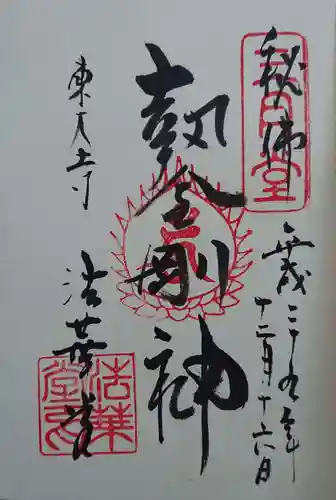 秘佛
平成二十九年
十二月十六日
執金剛神
東大寺
法華堂
法華堂印